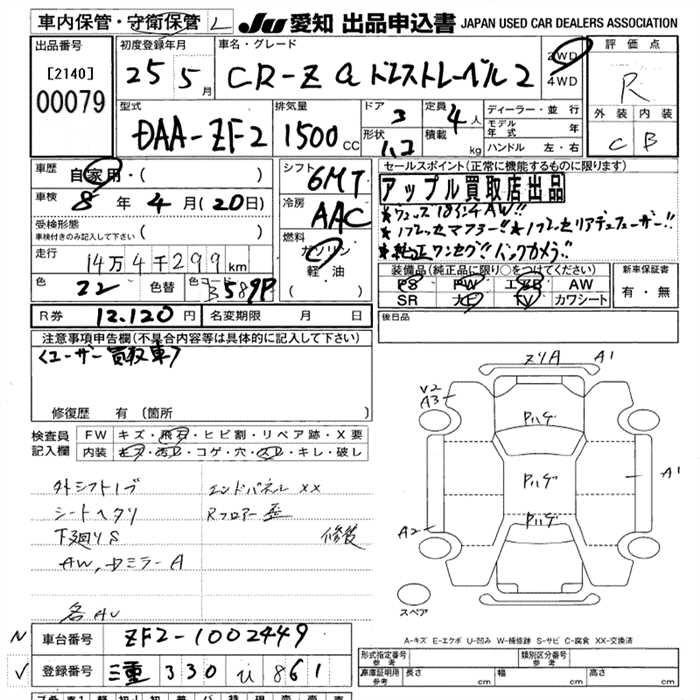 車内保管・守衛保管 L JU 愛知 出品申込書 JAPAN USED CAR DEALERS ASSOCIATION
出品番号 初度登録年月 車名・グレード 評価点
[2140] 25 5月 CR-Z α 2 2WD 4WD R
00079 外装 内装
型式 排気量 ドア 定員 ディーラー・並行
DAA-ZF2 1500CC 3 4人 モデル年式
形状 ハコ 積載 kg ハンドル 左・右 C B
車歴 自家用・( ) シフト 6MT セールスポイント(正常に機能するものに限ります)
車検 8年4月(20日) 冷房 AAC アップル買取店出品
受検形態 ( )
車検付きのみ記入して下さい 燃料
走行 14万4千299km ガソリン 軽油
*純正ワンセグ!!バックカメラ!!
色 22 色替 B589P ( )
装備品(純正品に限り○をつけてください) 新車保証書
PS PW エアB AW 有・無
SR ナビ TV カワシート
R券 12,120円 名変期限 月 日 後日品
注意事項申告欄(不具合内容等は具体的に記入して下さい)
<ユーザー買取車>
修復歴 有(箇所
検査員記入欄 FW キズ・飛石・ヒビ割・リペア跡・X要
内装 キズ・汚レ・コゲ・穴・スレ・キレ・破レ
外シフトノブ エンドパネル XX
シートヘタリ Rフロアー歪
下廻りS 修復
AW、ドミラーA
各AU
A1
V2
A3
Pハゲ
Pハゲ A1
Pハゲ
A2
スペア
A-キズ E-エクボ U-凹み W-補修跡 S-サビ C-腐食 XX-交換済
N 車台番号 ZF2-1002449
形式指定番号 参考 類別区分番号 参考
✓ 登録番号 三重 330 861
車庫証明用 参考 長さ cm 幅 cm 高さ cm